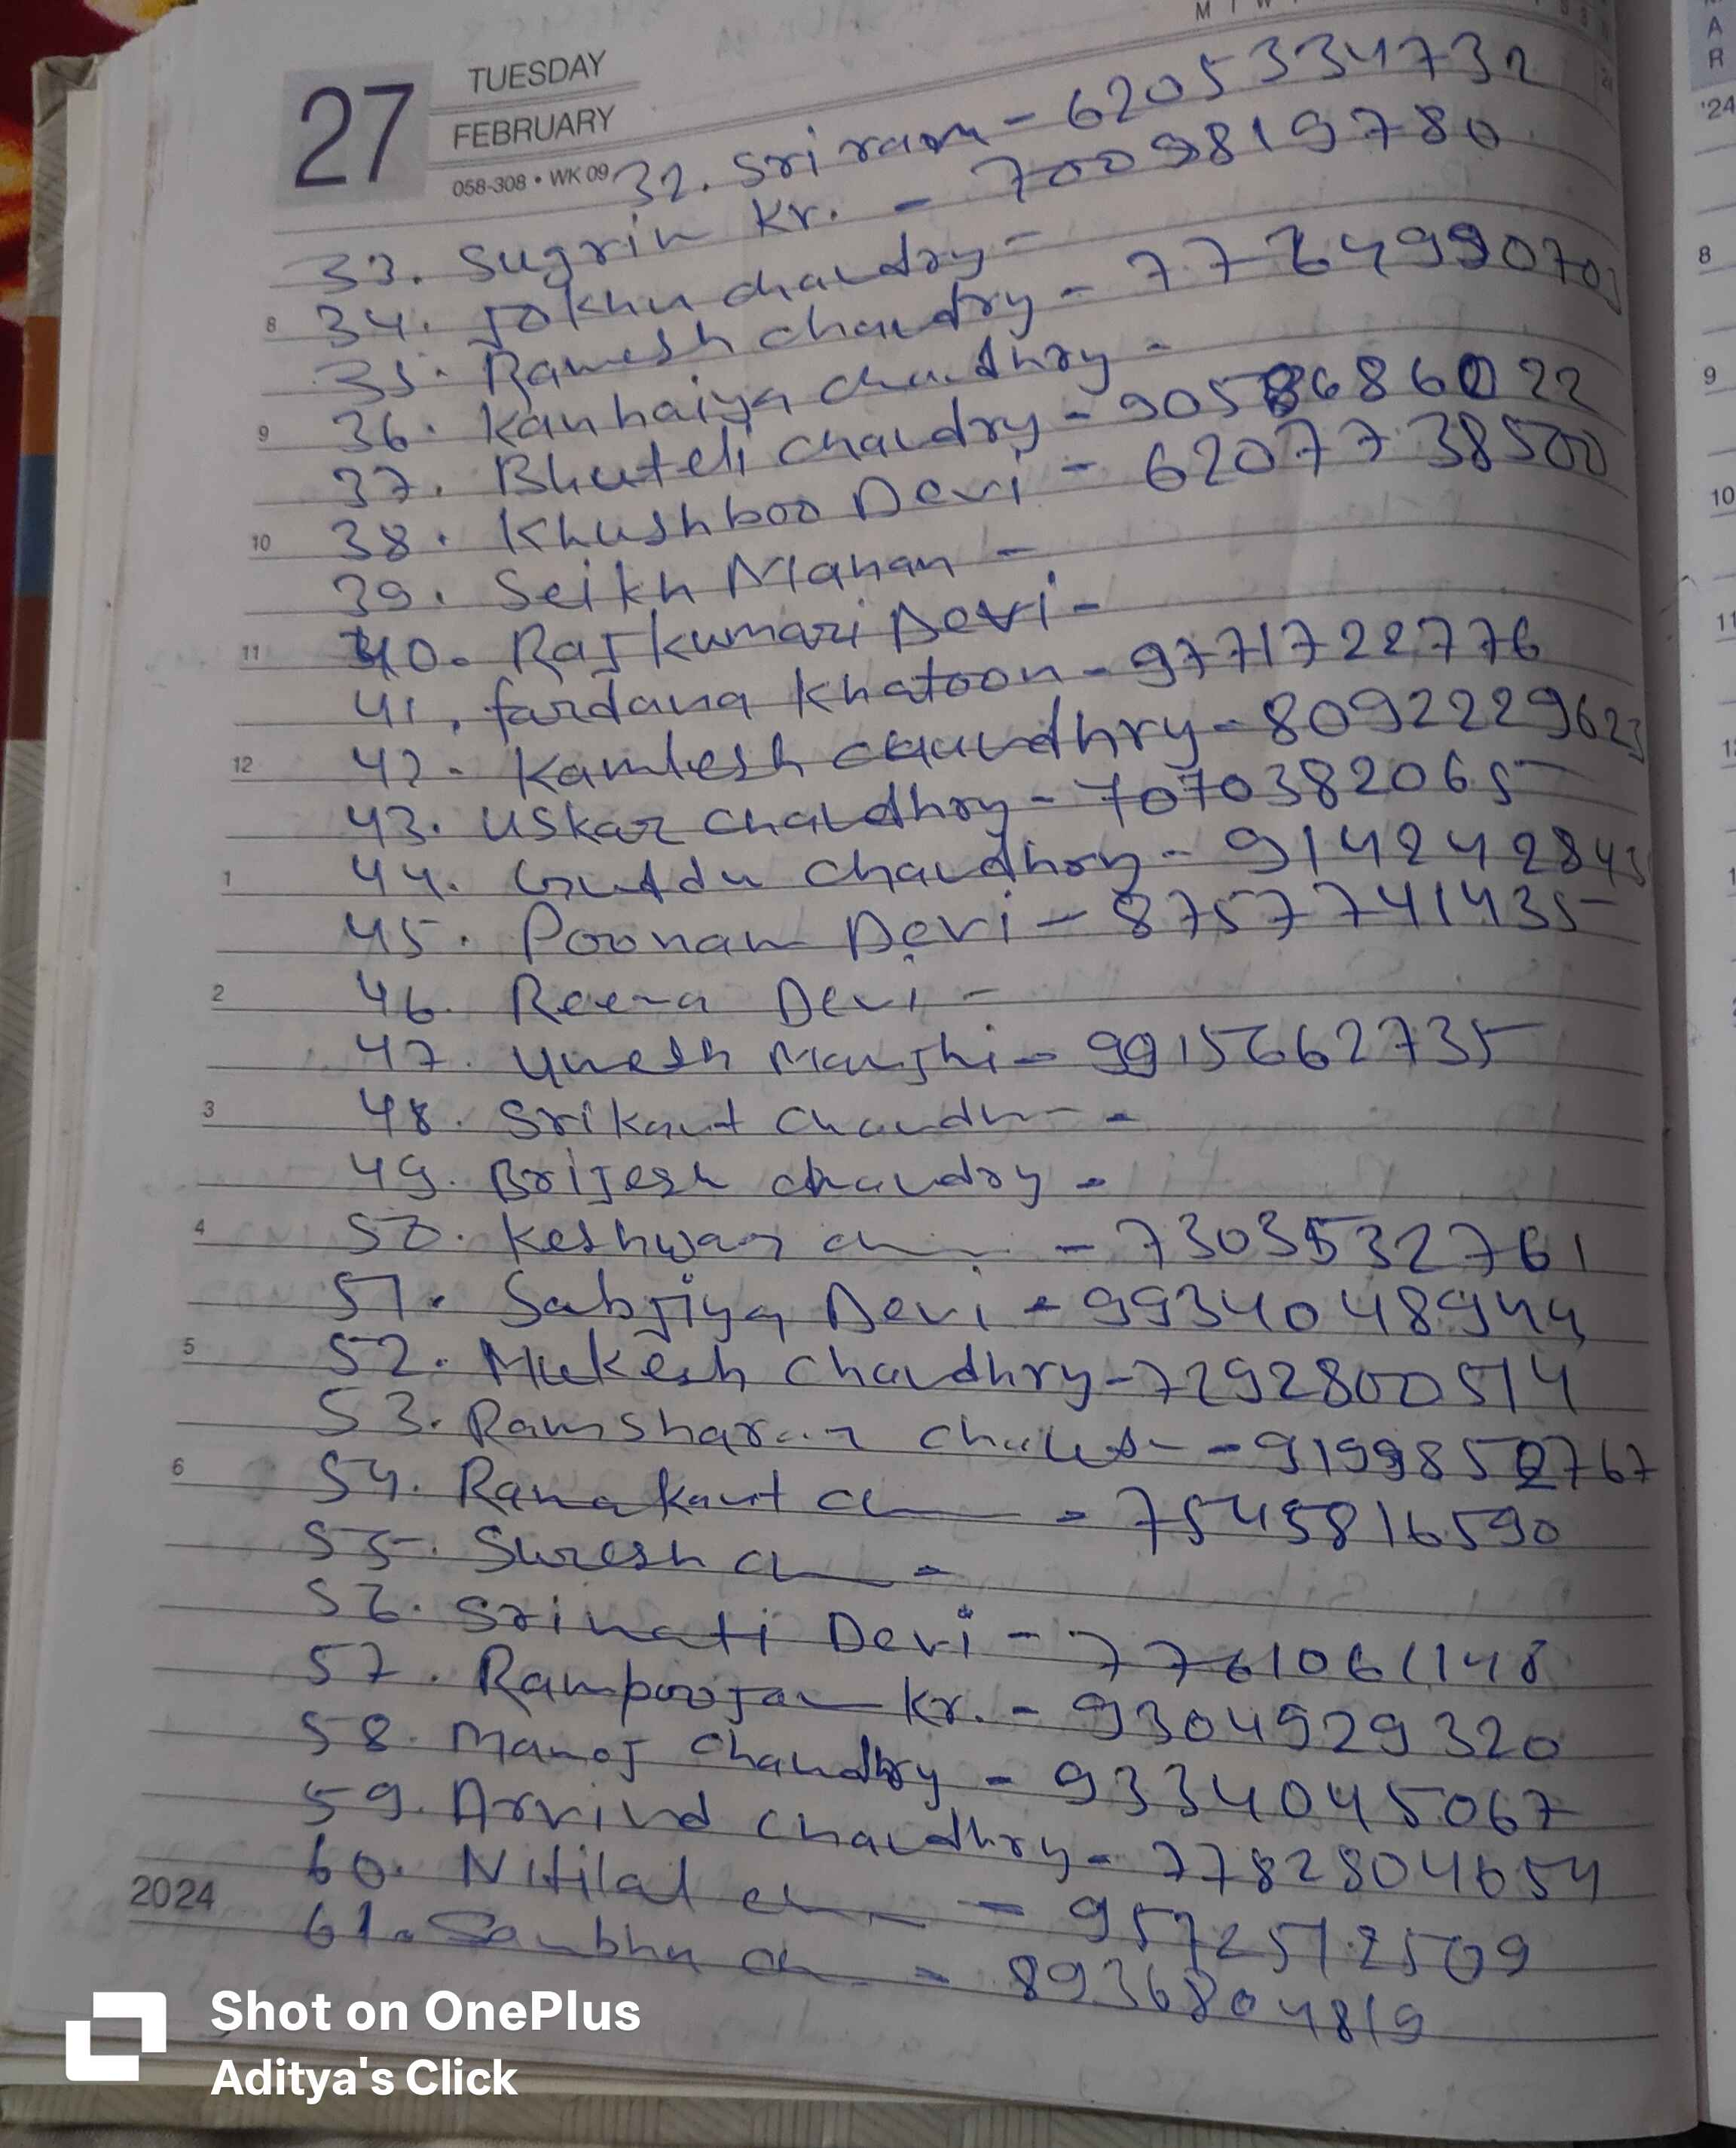 27 TUESDAY
FEBRUARY
058-308 • WK 09
32. Sriram - 6205334732
33. Sugriv Kr. - 7009819780
8 34. Jokhu chaudry -
35. Ramesh chaudry - 7764990703
9 36. Kanhaiya chaudhry -
37. Bhuteli chaudry - 9058686022
10 38. Khushboo Devi - 6207738500
39. Seikh Manan -
11 40. Rajkumari Devi -
41. fardana khatoon - 9771722776
12 42. Kamlesh chaudhry - 8092229623
43. Uskar chaudhry - 7070382065
1 44. Guddu chaudhry - 914242843
45. Poonam Devi - 8757741435
2 46. Reena Devi -
47. Umesh Manjhi - 9915662735
3 48. Srikant Chaudh -
49. Brijesh chaudry -
4 50. Keshwar ch - 7303532761
51. Sabjiya Devi - 9934048944
5 52. Mukesh Chaudhry - 7292800514
53. Ramsharan - 9199850767
6 54. Ramakant ch - 7545816590
55. Suresh ch -
56. Srimati Devi - 7761061148
57. Rampoojan Kr. - 9304929320
58. Manoj chaudhry - 9334045067
59. Arvind chaudhry - 7782804654
60. Nitilal ch - 9572512509
2024 61. Sambhu ch - 8936804819
M T W
M
A
R
'24
8
9
10
11
Shot on OnePlus
Aditya's Click